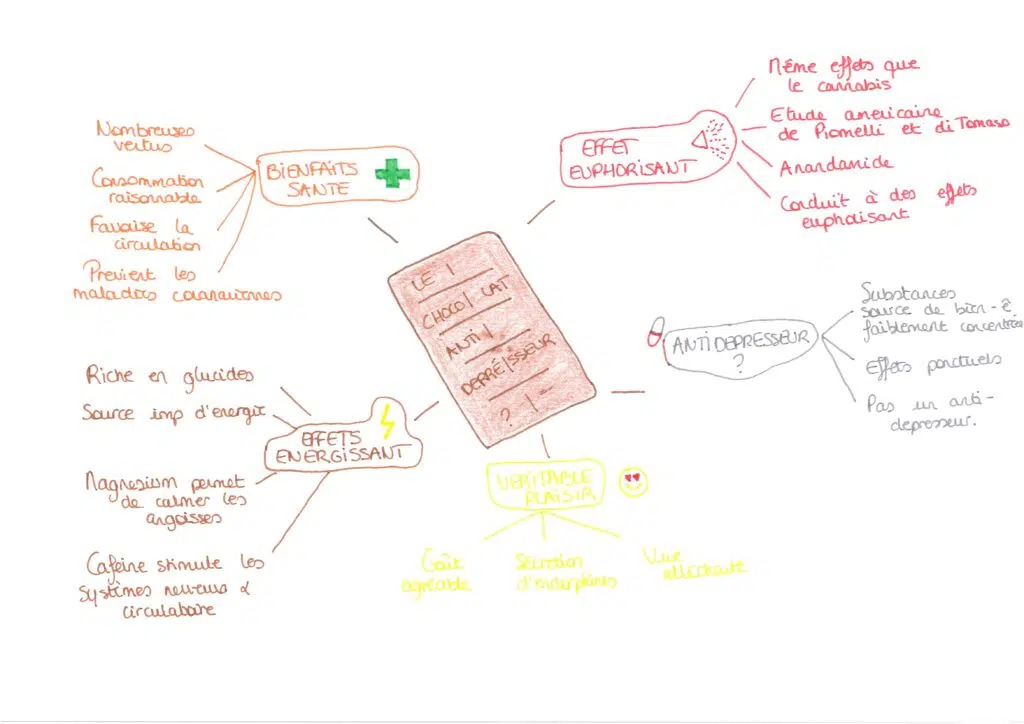 LE
CHOCO LAT
ANTI
DEPRÉ SSEUR
?
BIENFAITS
SANTE
Nombreuses
vertus
Consommation
raisonnable
Favorise la
circulation
Previent les
maladies coronariennes
EFFET
EUPHORISANT
Même effets que
le cannabis
Etude americaine
de Piomelli et di Tomaso
Anandamide
Conduit à des effets
euphorisant
ANTIDEPRESSEUR
?
Substances
source de bien-ê
faiblement concentrée
Effets ponctuels
Pas un anti-
depresseur.
VERITABLE
PLAISIR
Goût
agréable
Sécrétion
d'endorphines
Vue
alléchante
EFFETS
ENERGISSANT
Riche en glucides
Source imp d'energie
Magnesium permet
de calmer les
angoisses
Cafeine stimule les
systèmes nerveux &
circulatoire